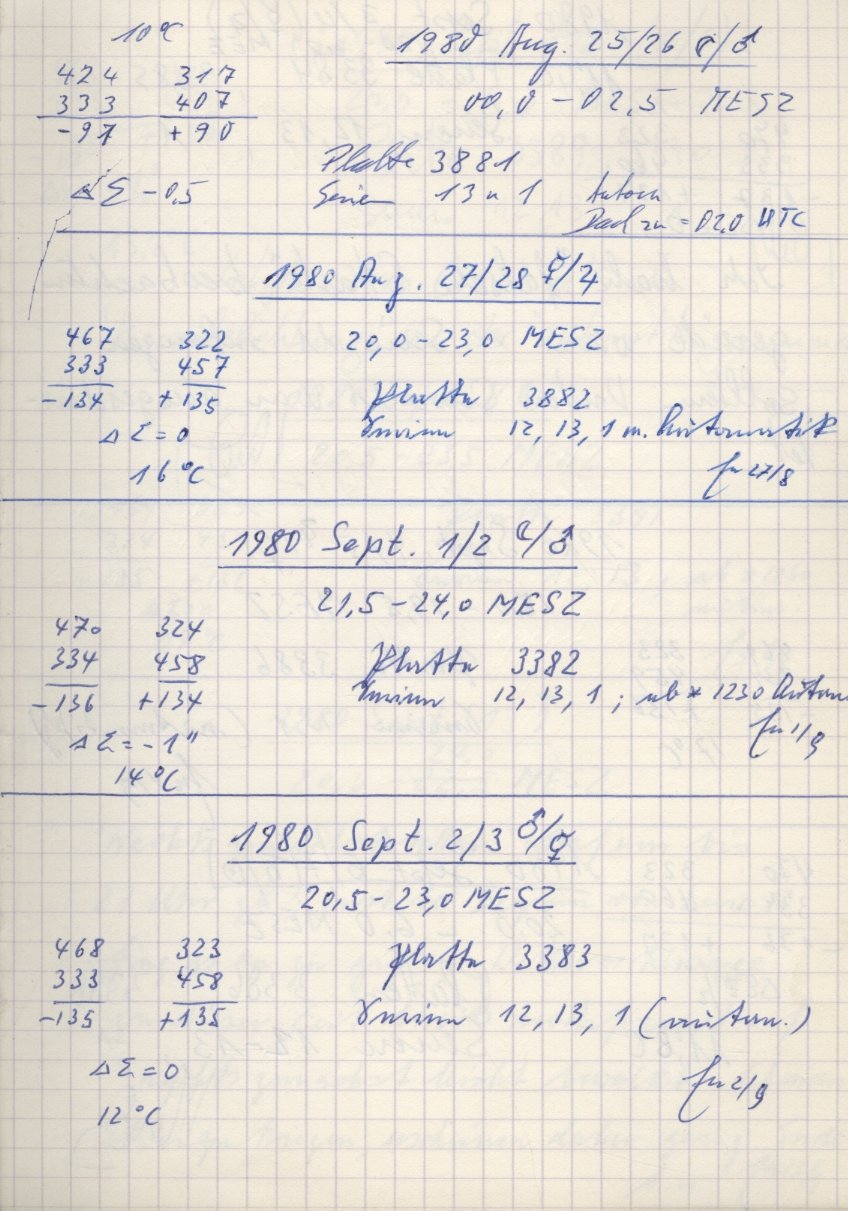 10°C
1980 Aug. 25/26 ☾/♂
424 317
333 407
-97 +90
00,0 - 02,5 MESZ
Platte 3881
ΔΣ -0,5
Serien 13 u 1 Autom
Dach zu = 02,0 UTC
1980 Aug. 27/28 ☿/♃
467 322
333 457
-134 +135
20,0-23,0 MESZ
Platte 3882
ΔΣ=0
Serien 12, 13, 1 m. Automatik
16°C
27/8
1980 Sept. 1/2 ☾/♂
21,5-24,0 MESZ
470 324
334 458
-136 +134
Platte 3382
Serien 12, 13, 1 ; ab * 1230 Autom
ΔΣ=-1"
1/9
14°C
1980 Sept. 2/3 ♂/☿
20,5-23,0 MESZ
468 323
333 458
-135 +135
Platte 3383
Serien 12, 13, 1 (autom.)
ΔΣ=0
2/9
12°C